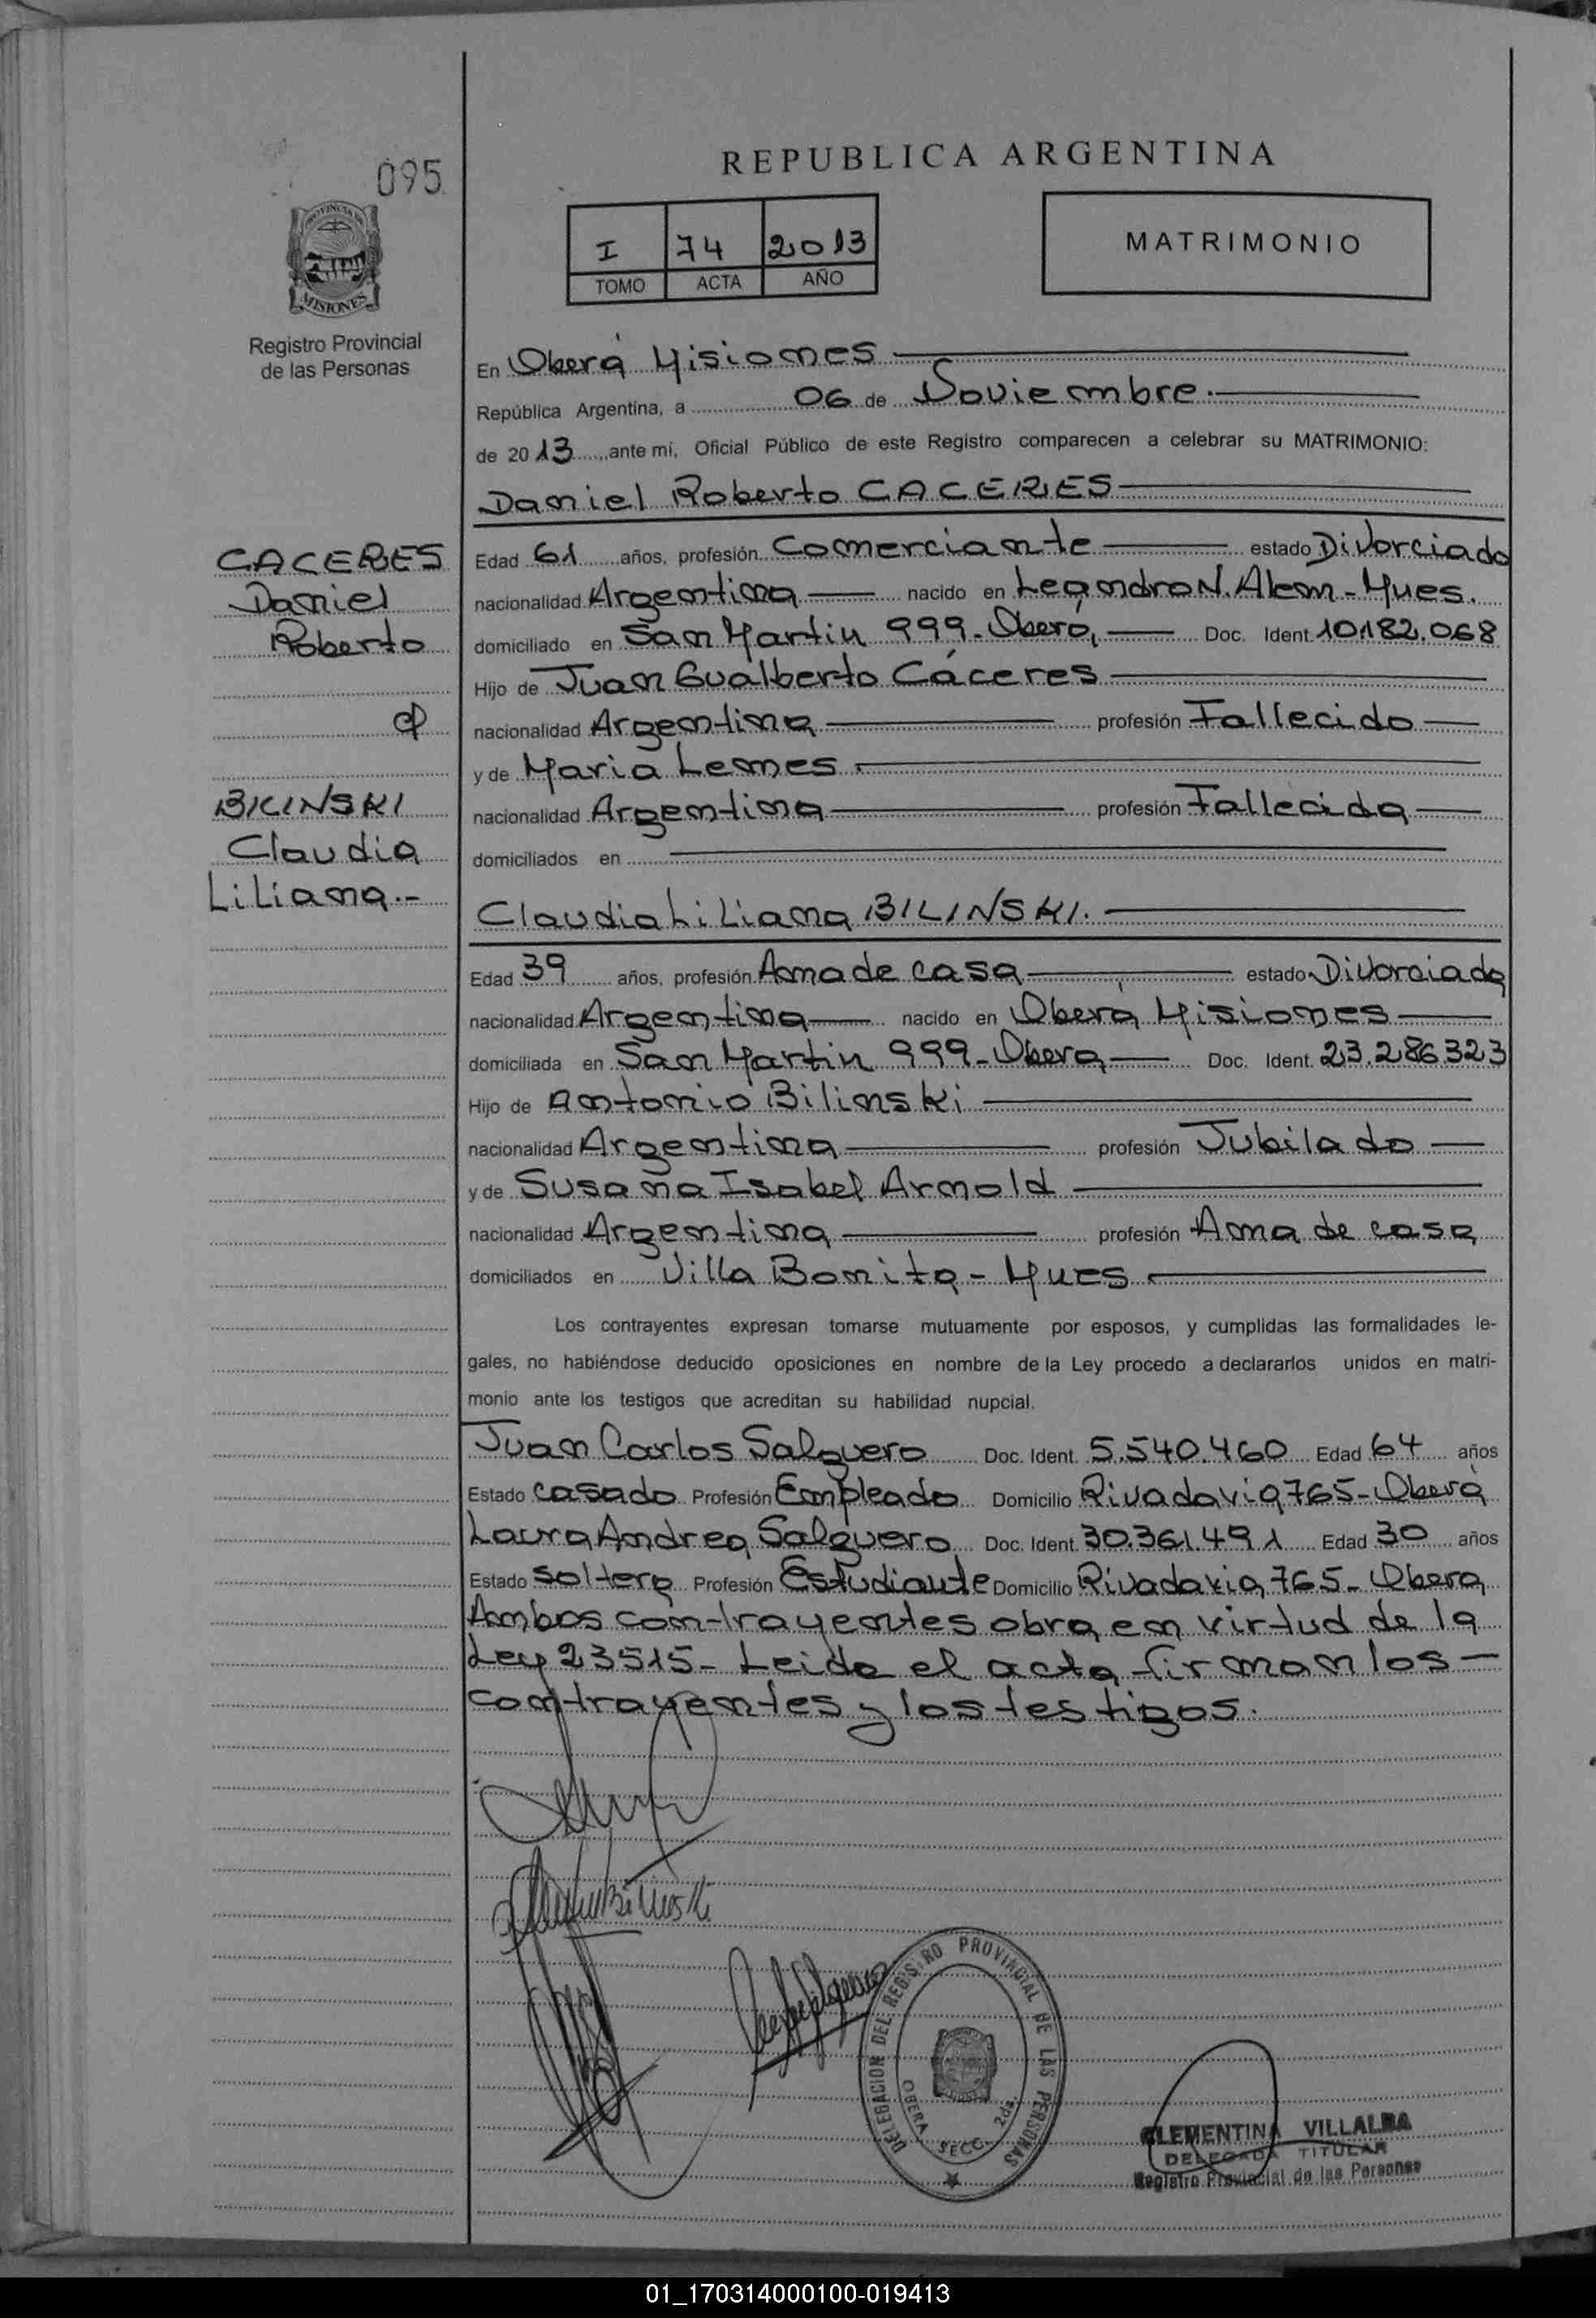 095
REPUBLICA ARGENTINA
PROVINCIA DE
MISIONES
Registro Provincial
de las Personas
I 74 2013
TOMO ACTA AÑO
MATRIMONIO
En Oberá Misiones
República Argentina, a 06 de Noviembre.
de 2013, ante mí, Oficial Público de este Registro comparecen a celebrar su MATRIMONIO:
Daniel Roberto CACERES
CACERES
Daniel
Roberto
Edad 61 años, profesión Comerciante estado Divorciado
nacionalidad Argentina nacido en Leandro N. Alem - Mnes.
domiciliado en San Martin 999 - Oberá, Doc. Ident. 10.182.068
Hijo de Juan Gualberto Cáceres
nacionalidad Argentina profesión Fallecido
y de Maria Lemes.
nacionalidad Argentina profesión Fallecida
domiciliados en
BILINSKI
Claudia
Liliana.-
Claudia Liliana BILINSKI.
Edad 39 años, profesión Ama de casa estado Divorciada
nacionalidad Argentina nacido en Oberá Misiones
domiciliada en San Martin 999 - Obera Doc. Ident. 23.286.323
Hijo de Antonio Bilinski
nacionalidad Argentina profesión Jubilado
y de Susana Isabel Arnold
nacionalidad Argentina profesión Ama de casa
domiciliados en Villa Bonita - Mnes.
Los contrayentes expresan tomarse mutuamente por esposos, y cumplidas las formalidades le-
gales, no habiéndose deducido oposiciones en nombre de la Ley procedo a declararlos unidos en matri-
monio ante los testigos que acreditan su habilidad nupcial.
Juan Carlos Salguero Doc. Ident. 5.540.460 Edad 64 años
Estado casado Profesión Empleado Domicilio Rivadavia 765 - Oberá
Laura Andrea Salguero Doc. Ident. 30.361.491 Edad 30 años
Estado soltera Profesión Estudiante Domicilio Rivadavia 765 - Obera
Ambos contrayentes obra en virtud de la
Ley 23515 - Leida el acta firman los
contrayentes y los testigos.
DELEGACION DEL REGISTRO PROVINCIAL DE LAS PERSONAS
OBERA SECC. 2da.
CLEMENTINA VILLALBA
DELEGADA TITULAR
Registro Provincial de las Personas
01_170314000100-019413